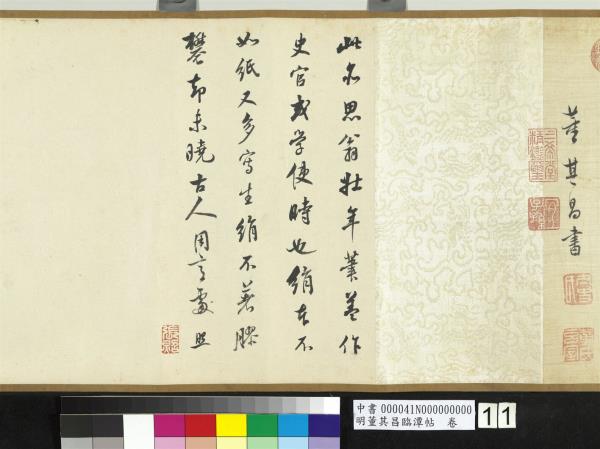 董其昌書
此亦思翁壯年筆蓋作
史官或學使時也絹本不
如紙又多寫生絹不著膠
礬却未曉古人用意處 照
中書 000041N000000000
明董其昌臨潭帖 卷
11